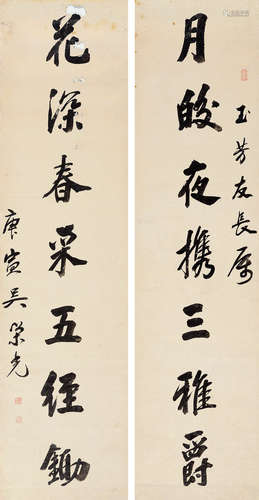 玉芳友長属
月皎夜攜三雅爵
花深春采五經鋤
庚寅吴榮光